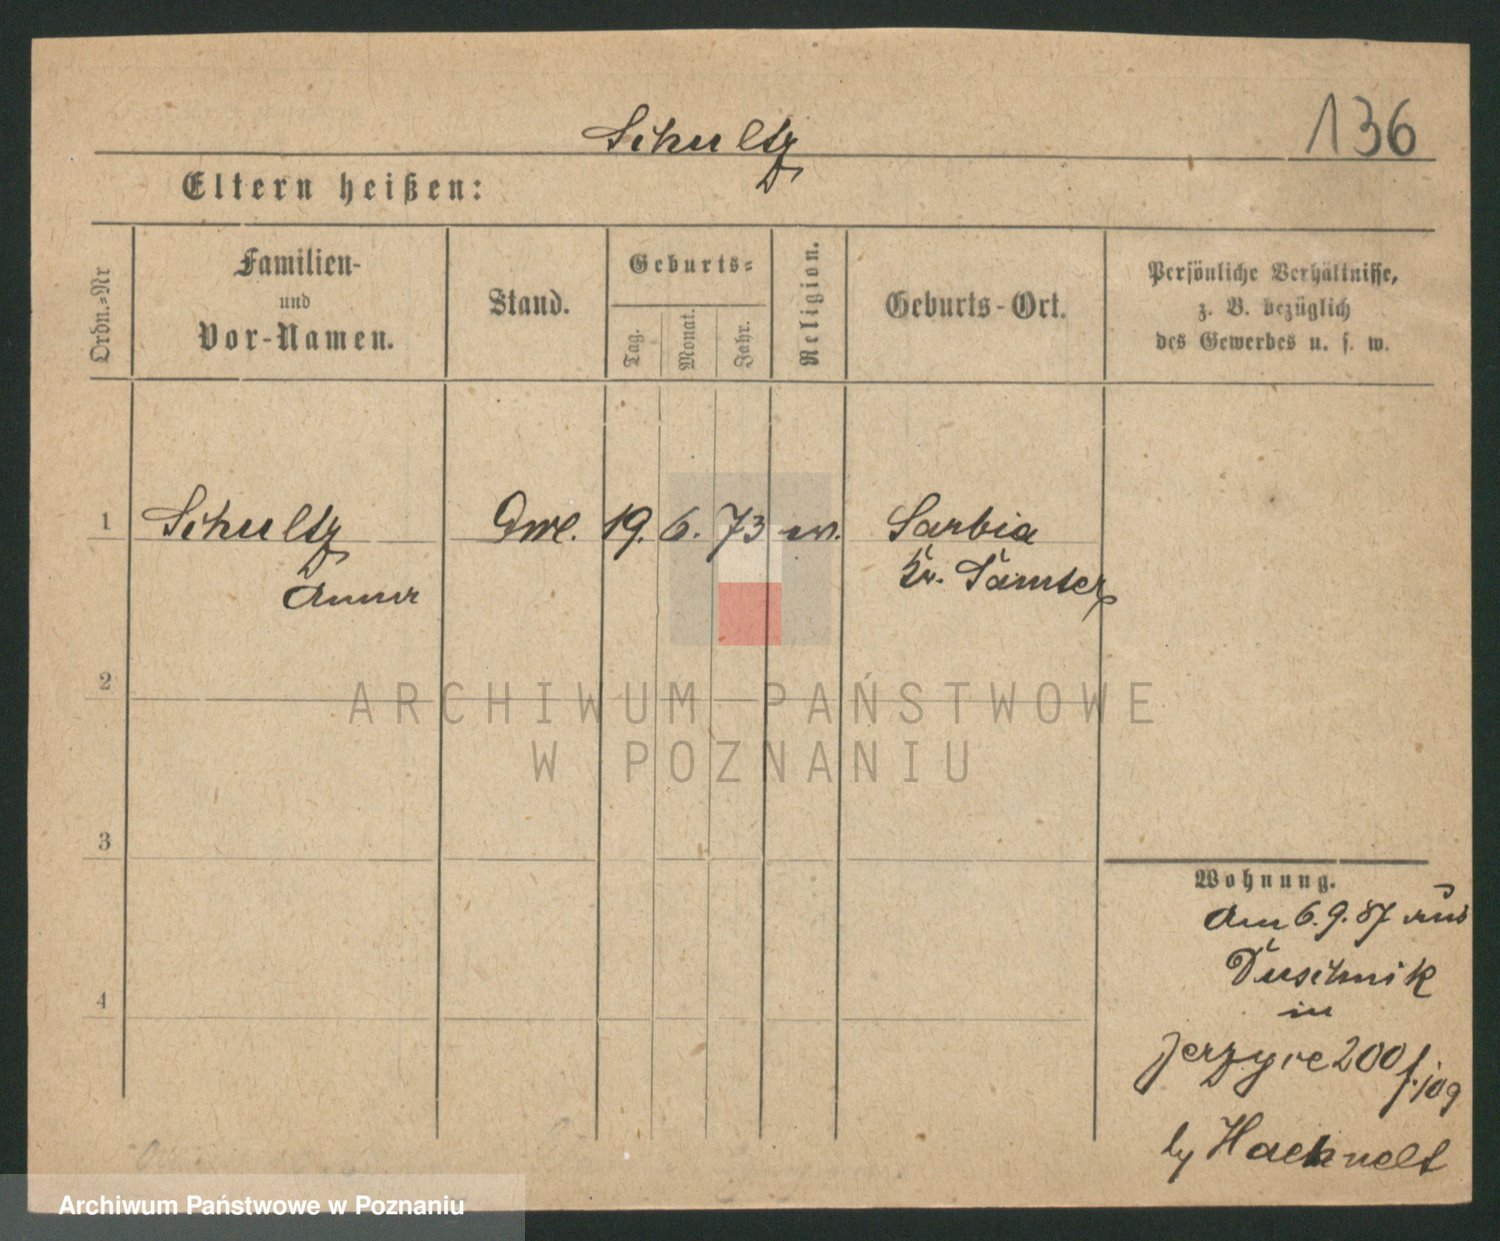 Schultz
136
Eltern heißen:
Ordn.-Nr
Familien-
und
Vor-Namen.
Stand.
Geburts-
Tag.
Monat.
Jahr.
Religion.
Geburts-Ort.
Persönliche Verhältnisse,
z. B. bezüglich
des Gewerbes u. s. w.
1
Schultz
Anna
19. 6. 73
ev.
Sarbia
Kr. Samter
2
3
4
Wohnung.
am 6.9.87 aus
Duschnik
in
Jerzyce 200
Haenelt
ARCHIWUM PAŃSTWOWE
W POZNANIU
Archiwum Państwowe w Poznaniu